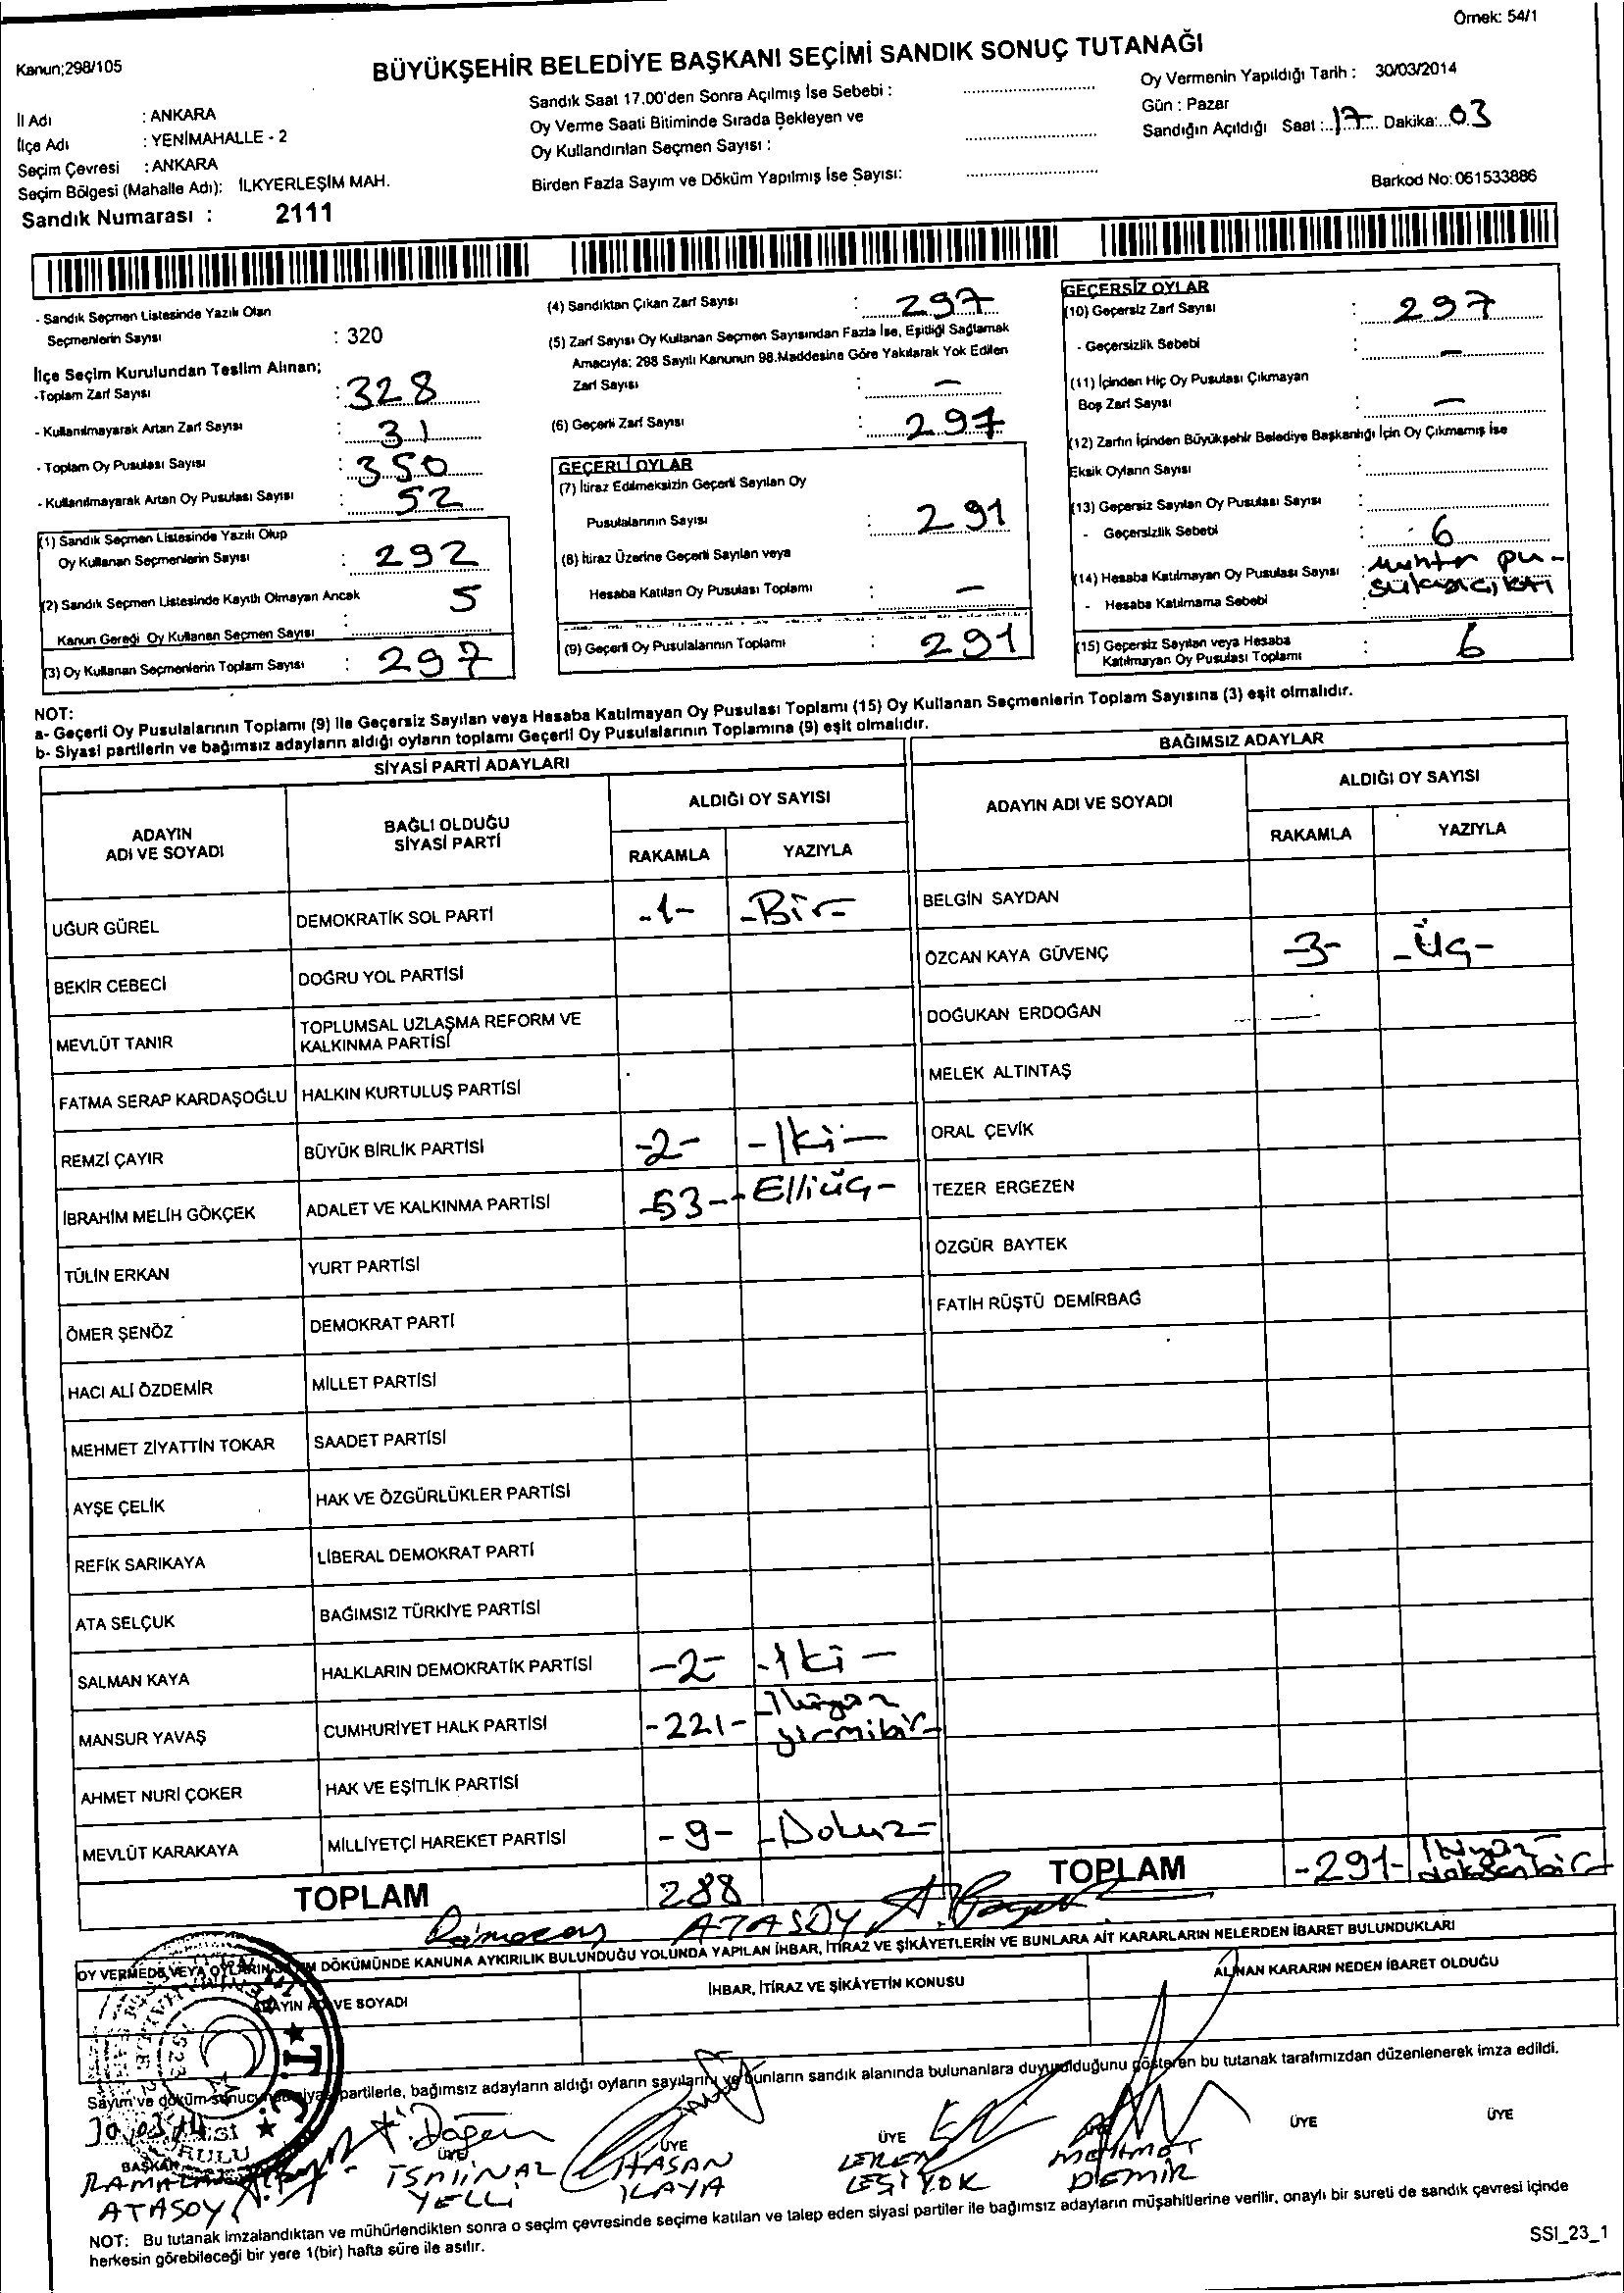 Örnek: 54/1
Kanun;298/105
BÜYÜKŞEHİR BELEDİYE BAŞKANI SEÇİMİ SANDIK SONUÇ TUTANAĞI
İl Adı : ANKARA
İlçe Adı : YENİMAHALLE - 2
Seçim Çevresi : ANKARA
Seçim Bölgesi (Mahalle Adı): İLKYERLEŞİM MAH.
Sandık Numarası : 2111
Sandık Saat 17.00'den Sonra Açılmış İse Sebebi :
Oy Verme Saati Bitiminde Sırada Bekleyen ve
Oy Kullandırılan Seçmen Sayısı :
Birden Fazla Sayım ve Döküm Yapılmış İse Sayısı:
Oy Vermenin Yapıldığı Tarih : 30/03/2014
Gün : Pazar
Sandığın Açıldığı Saat : 17 Dakika: 03
Barkod No: 061533886
- Sandık Seçmen Listesinde Yazılı Olan
Seçmenlerin Sayısı : 320
İlçe Seçim Kurulundan Teslim Alınan;
-Toplam Zarf Sayısı : 328
- Kullanılmayarak Artan Zarf Sayısı : 31
- Toplam Oy Pusulası Sayısı : 350
- Kullanılmayarak Artan Oy Pusulası Sayısı : 52
(1) Sandık Seçmen Listesinde Yazılı Olup
Oy Kullanan Seçmenlerin Sayısı : 292
(2) Sandık Seçmen Listesinde Kayıtlı Olmayan Ancak
Kanun Gereği Oy Kullanan Seçmen Sayısı : 5
(3) Oy Kullanan Seçmenlerin Toplam Sayısı : 297
(4) Sandıktan Çıkan Zarf Sayısı : 297
(5) Zarf Sayısı Oy Kullanan Seçmen Sayısından Fazla İse, Eşitliği Sağlamak
Amacıyla; 298 Sayılı Kanunun 98.Maddesine Göre Yakılarak Yok Edilen
Zarf Sayısı : —
(6) Geçerli Zarf Sayısı : 297
GEÇERLİ OYLAR
(7) İtiraz Edilmeksizin Geçerli Sayılan Oy
Pusulalarının Sayısı : 291
(8) İtiraz Üzerine Geçerli Sayılan veya
Hesaba Katılan Oy Pusulası Toplamı : —
(9) Geçerli Oy Pusulalarının Toplamı : 291
GEÇERSİZ OYLAR
(10) Geçersiz Zarf Sayısı : 297
- Geçersizlik Sebebi : —
(11) İçinden Hiç Oy Pusulası Çıkmayan
Boş Zarf Sayısı : —
(12) Zarfın İçinden Büyükşehir Belediye Başkanlığı İçin Oy Çıkmamış İse
Eksik Oyların Sayısı :
(13) Geçersiz Sayılan Oy Pusulası Sayısı :
- Geçersizlik Sebebi : 6
(14) Hesaba Katılmayan Oy Pusulası Sayısı : Muhtar pu-
- Hesaba Katılmama Sebebi
(15) Geçersiz Sayılan veya Hesaba
Katılmayan Oy Pusulası Toplamı : 6
NOT:
a- Geçerli Oy Pusulalarının Toplamı (9) ile Geçersiz Sayılan veya Hesaba Katılmayan Oy Pusulası Toplamı (15) Oy Kullanan Seçmenlerin Toplam Sayısına (3) eşit olmalıdır.
b- Siyasi partilerin ve bağımsız adayların aldığı oyların toplamı Geçerli Oy Pusulalarının Toplamına (9) eşit olmalıdır.
SİYASİ PARTİ ADAYLARI
ADAYIN
ADI VE SOYADI
BAĞLI OLDUĞU
SİYASİ PARTİ
ALDIĞI OY SAYISI
RAKAMLA YAZIYLA
UĞUR GÜREL DEMOKRATİK SOL PARTİ -1- -Bir-
BEKİR CEBECİ DOĞRU YOL PARTİSİ
MEVLÜT TANIR TOPLUMSAL UZLAŞMA REFORM VE
KALKINMA PARTİSİ
FATMA SERAP KARDAŞOĞLU HALKIN KURTULUŞ PARTİSİ
REMZİ ÇAYIR BÜYÜK BİRLİK PARTİSİ -2- -İki-
İBRAHİM MELİH GÖKÇEK ADALET VE KALKINMA PARTİSİ -53- -Elliüç-
TÜLİN ERKAN YURT PARTİSİ
ÖMER ŞENÖZ DEMOKRAT PARTİ
HACI ALİ ÖZDEMİR MİLLET PARTİSİ
MEHMET ZİYATTİN TOKAR SAADET PARTİSİ
AYŞE ÇELİK HAK VE ÖZGÜRLÜKLER PARTİSİ
REFİK SARIKAYA LİBERAL DEMOKRAT PARTİ
ATA SELÇUK BAĞIMSIZ TÜRKİYE PARTİSİ
SALMAN KAYA HALKLARIN DEMOKRATİK PARTİSİ -2- -İki-
MANSUR YAVAŞ CUMHURİYET HALK PARTİSİ -221- -İkiyüz
yirmibir-
AHMET NURİ ÇOKER HAK VE EŞİTLİK PARTİSİ
MEVLÜT KARAKAYA MİLLİYETÇİ HAREKET PARTİSİ -9- -Dokuz-
TOPLAM 288
BAĞIMSIZ ADAYLAR
ADAYIN ADI VE SOYADI
ALDIĞI OY SAYISI
RAKAMLA YAZIYLA
BELGİN SAYDAN
ÖZCAN KAYA GÜVENÇ -3- -Üç-
DOĞUKAN ERDOĞAN
MELEK ALTINTAŞ
ORAL ÇEVİK
TEZER ERGEZEN
ÖZGÜR BAYTEK
FATİH RÜŞTÜ DEMİRBAĞ
TOPLAM -291- İkiyüz-
doksanbir
Ramazan ATASOY
OY VERMEDE VEYA OYLARIN SAYIM DÖKÜMÜNDE KANUNA AYKIRILIK BULUNDUĞU YOLUNDA YAPILAN İHBAR, İTİRAZ VE ŞİKÂYETLERİN VE BUNLARA AİT KARARLARIN NELERDEN İBARET BULUNDUKLARI
ADAYIN ADI VE SOYADI
İHBAR, İTİRAZ VE ŞİKÂYETİN KONUSU
ALINAN KARARIN NEDEN İBARET OLDUĞU
T.C.
Sayım ve döküm sonucunda siyasi partilerle, bağımsız adayların aldığı oyların sayılarını ve bunların sandık alanında bulunanlara duyurulduğunu gösteren bu tutanak tarafımızdan düzenlenerek imza edildi.
BAŞKAN ÜYE ÜYE ÜYE ÜYE ÜYE
RAMAZAN
ATASOY
YELLİ
HASAN
KAYA
MEHMET
DEMİR
NOT: Bu tutanak imzalandıktan ve mühürlendikten sonra o seçim çevresinde seçime katılan ve talep eden siyasi partiler ile bağımsız adayların müşahitlerine verilir, onaylı bir sureti de sandık çevresi içinde
herkesin görebileceği bir yere 1(bir) hafta süre ile asılır.
SSI_23_1